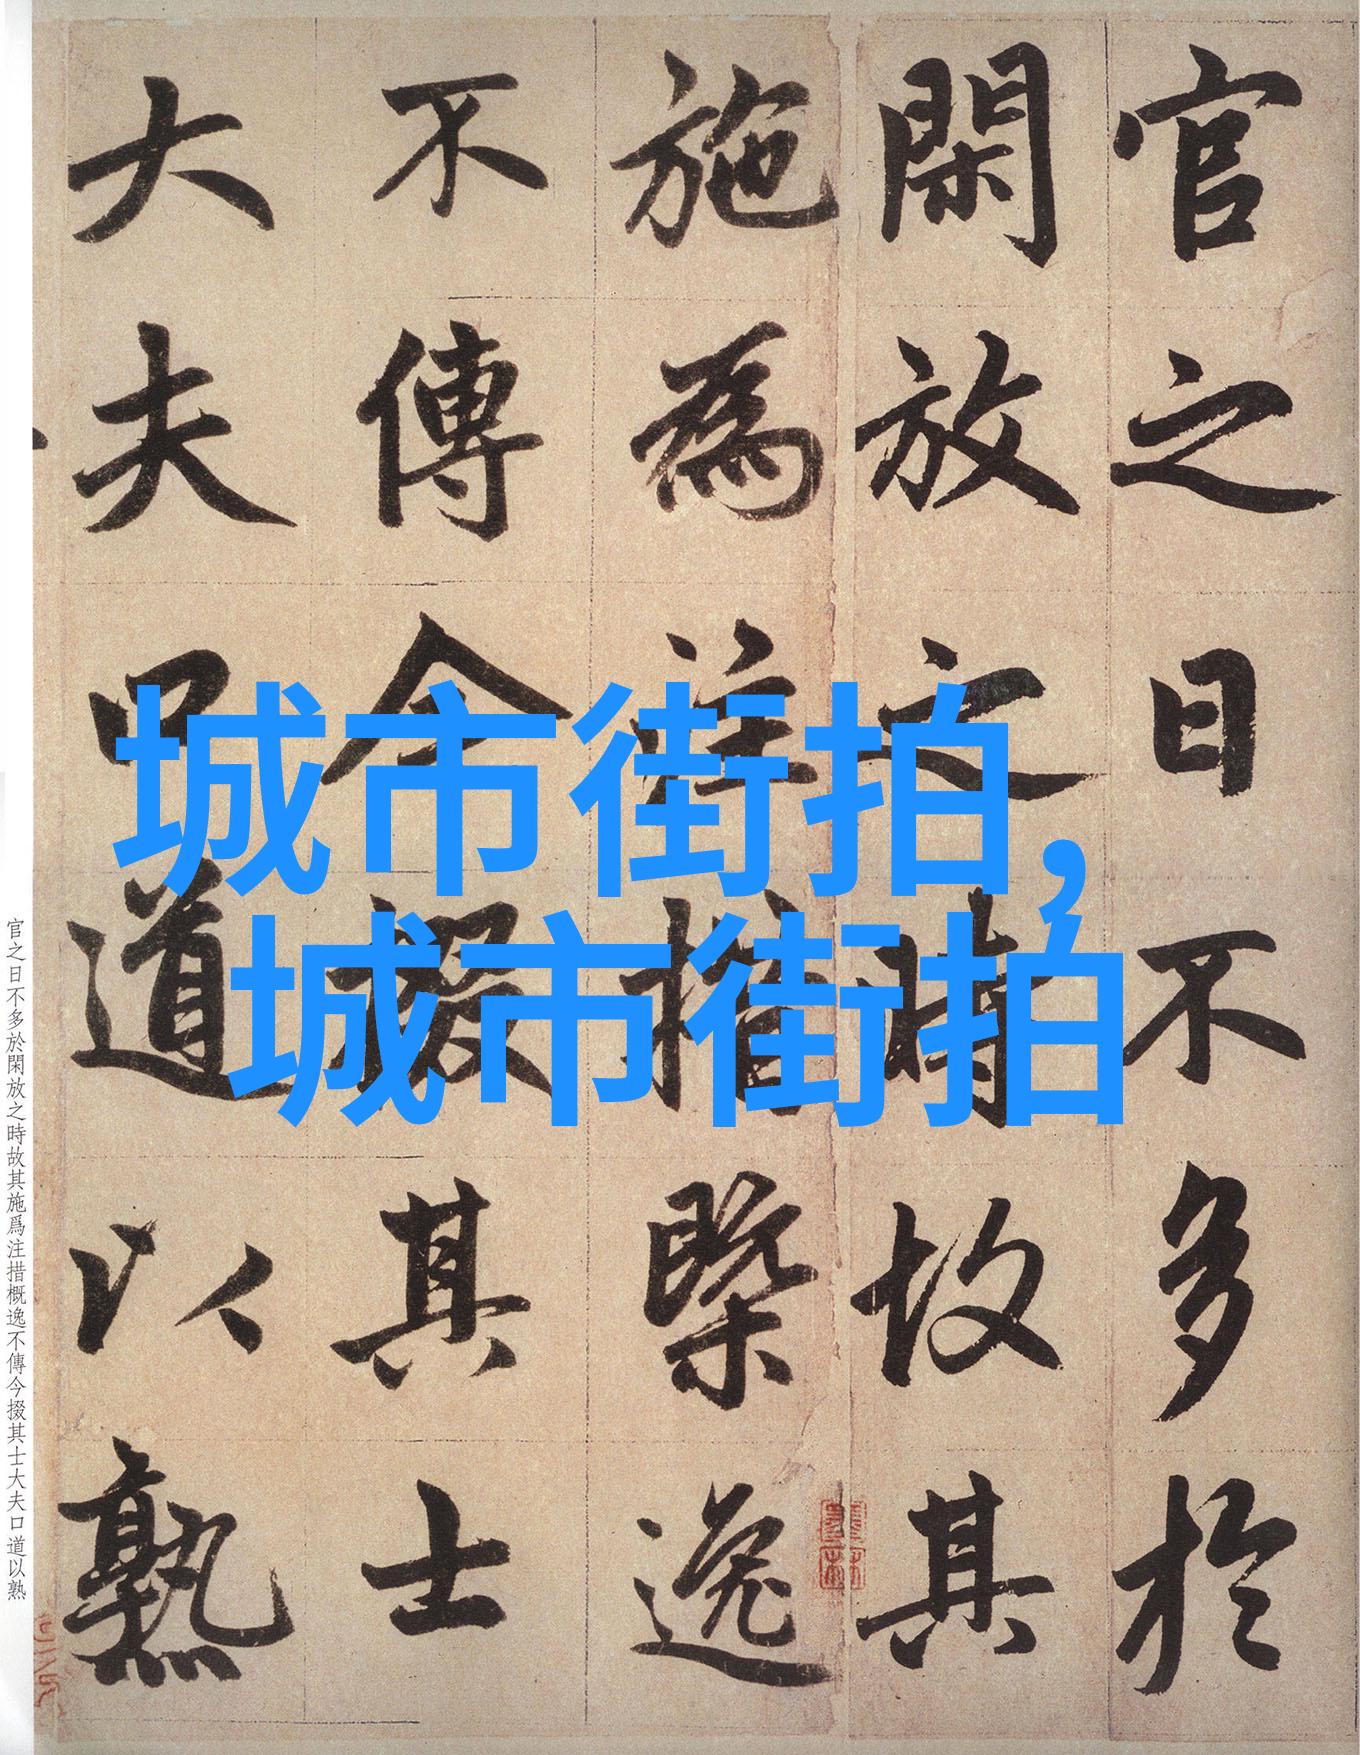 官之日不多於
閑放之時故其
施為注措槩逸
不傳今掇其士
大夫口道以熟
城市街拍,
城市街拍
官之日不多於閑放之時故其施爲注措概逸不傳今掇其士大夫口道以熟